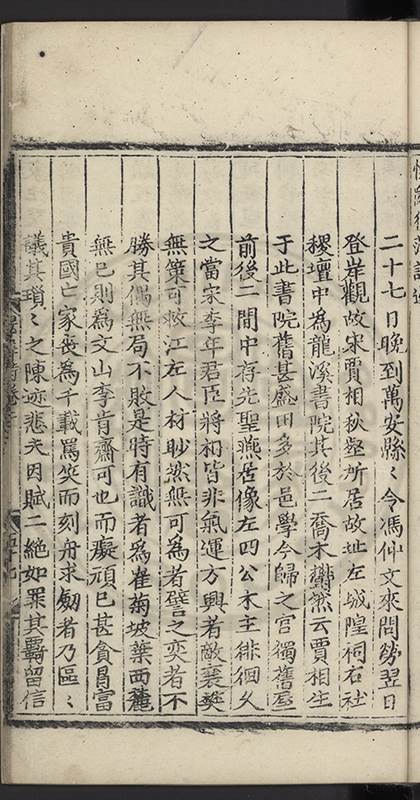 二十七日晚到萬安縣〻令馮仲文來問勞翌日
登岸觀故宋賈相秋壑所居故址左城隍祠右社
稷壇中為龍溪書院其後二喬木欝然云賈相生
于此書院舊甚盛田多於邑學今歸之官獨舊屋
前後二間中存先聖燕居像左四公木主徘徊久
之當宋季年君臣將相皆非氣運方興者敵襄樊
無策可救江左人材眇然無可為者譬之奕者不
勝其偶無局不敗是時有識者為崔菊坡葉西麓
無已則為文山李肯齋可也而癡頑已甚貪冒富
貴國亡家喪為千載罵笑而刻舟求劔者乃區〻
議其瑣〻之陳迹悲夫因賦二絶如罪其羈留信